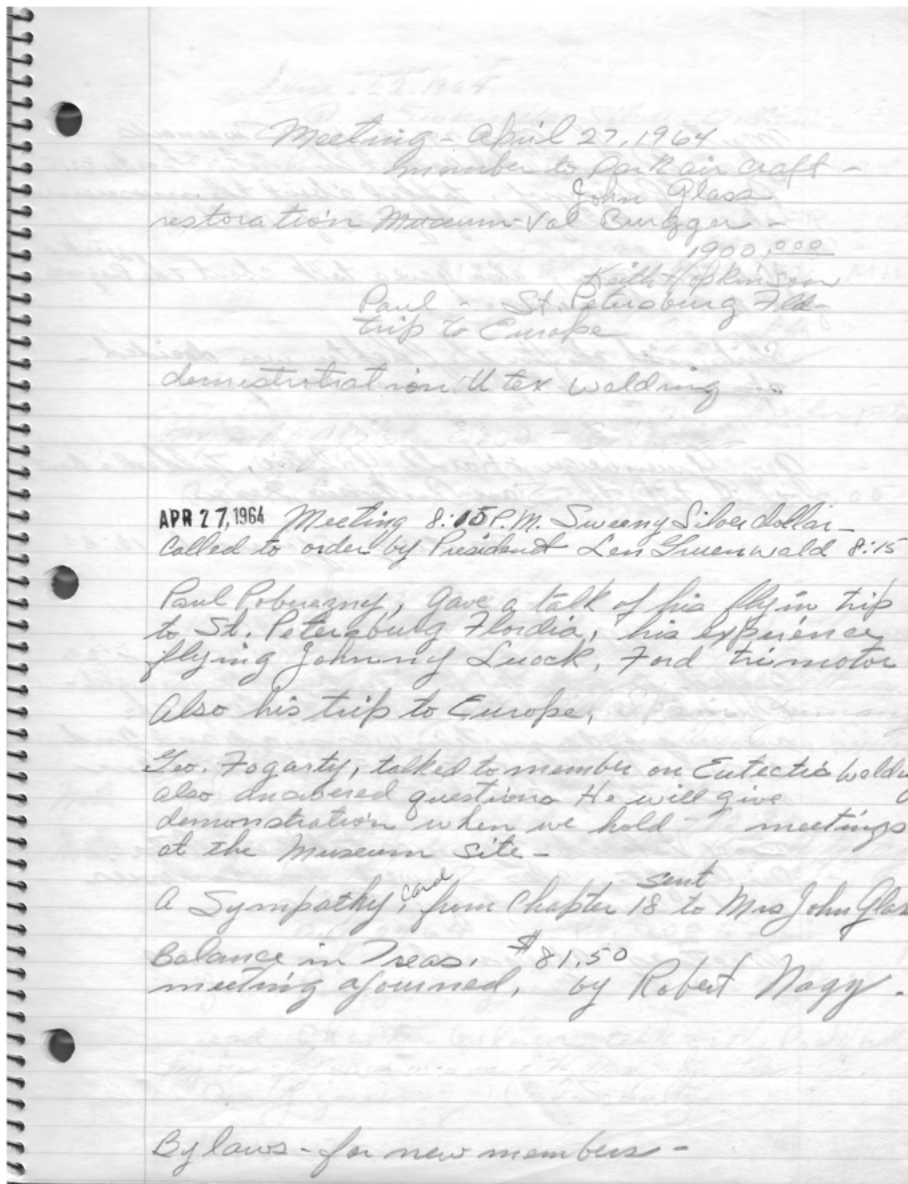 Meeting - April 27, 1964
member to park air craft -
John Glass
restoration Museum - Val Brugger -
1900,000
Keith Hopkinson
Paul - St. Petersburg Fld-
trip to Europe
demistrotration Utex waldring
APR 27, 1964 Meeting 8:15 P.M. Sweeny Silver dollar -
Called to order by President Len Gruenwald 8:15
Paul Poberezny, gave a talk of his fly in trip
to St. Petersburg Flordia, his experience
flying Johnny Luock, Ford trimotor
Also his trip to Europe,
Geo. Fogarty, talked to member on Eutectic Weldin
also answered questions He will give
demonstration when we hold meetings
at the Museum site -
A Sympathy, card from Chapter 18 sent to Mrs John Glas
Balance in Treas. $81.50
meeting ajourned, by Robert Nagy.
By laws - for new members -